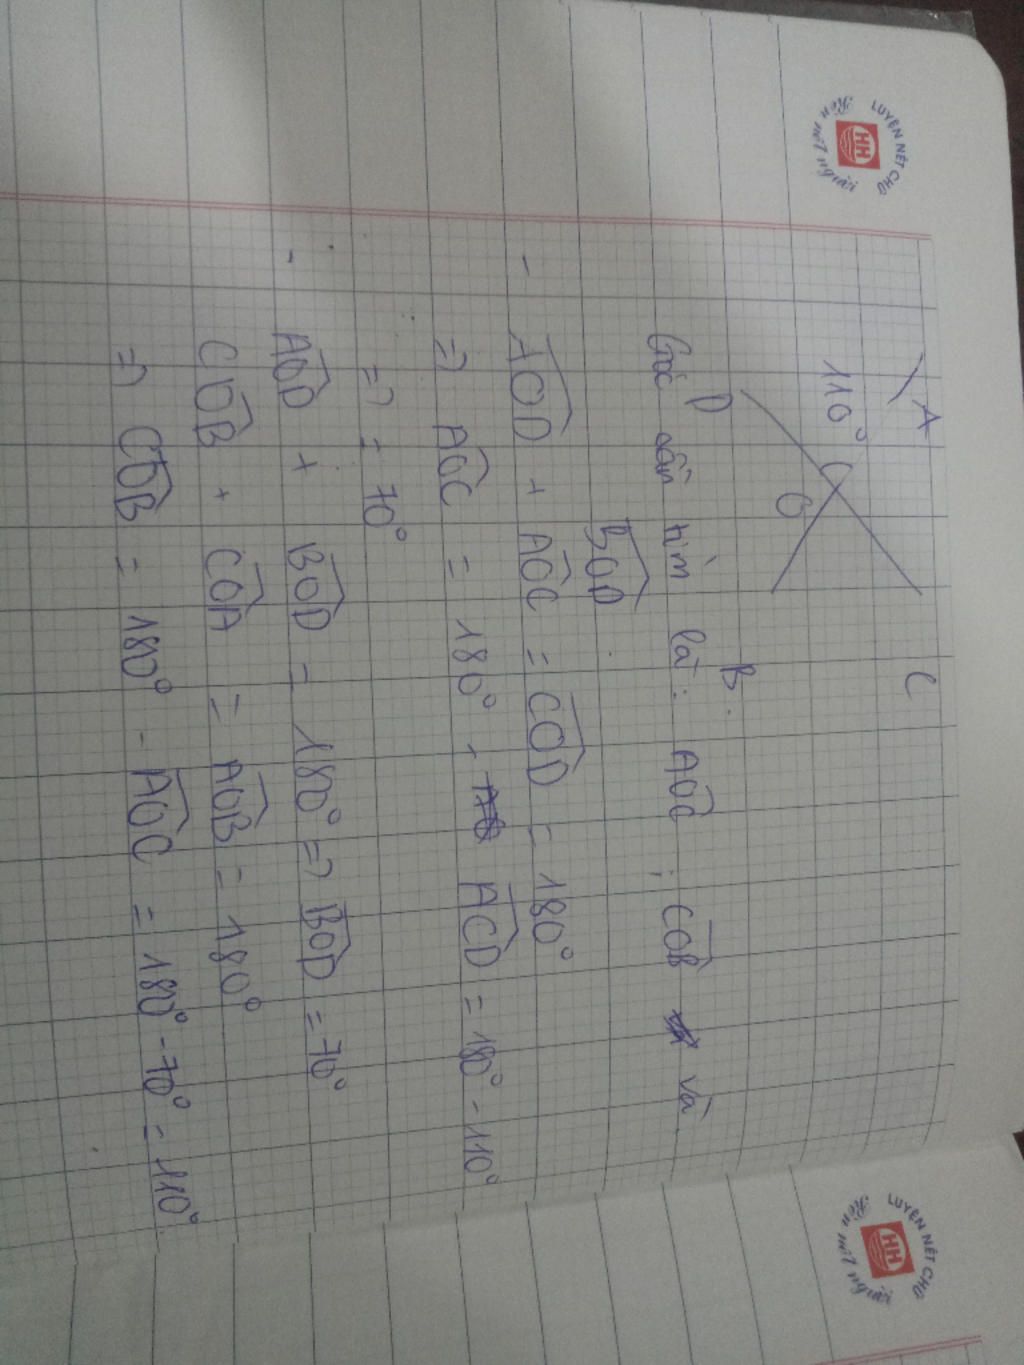 LUYỆN NÉT CHỮ
Rèn nết người
HH
A
C
110°
O
D
B
Góc cần tìm là: AOC ; COB và
BOD
- AOD + AOC = COD = 180°
=> AOC = 180° - ACD = 180° - 110°
=> = 70°
- AOD + BOD = 180° => BOD = 70°
COB + COA = AOB = 180°
=> COB = 180° - AOC = 180° - 70° = 110°
LUYỆN NÉT CHỮ
Rèn nết người
HH